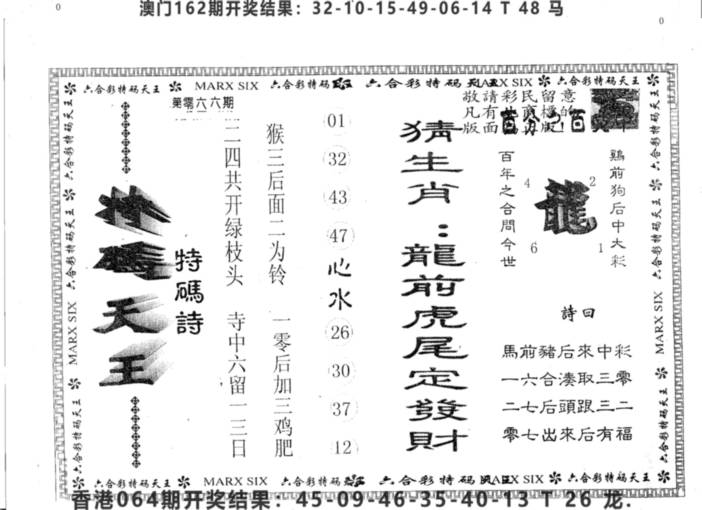 澳门162期开奖结果：32-10-15-49-06-14 T 48 马
0
0
六合彩特码天王 MARX SIX 六合彩特码 六合彩特码 MARX SIX 六合彩特码天王
第零六六期
特碼天王
特碼詩
猴三后面二为铃 一零后加三鸡肥
二四共开绿枝头 寺中六留一三日
01
32
43
47
心水
26
30
37
12
猜生肖：龍前虎尾定發財
敬請彩民留意
鷄前狗后中大彩
百年之合問今世
龍
4 2
6 1
詩曰
馬前豬后來中彩
一六合湊取三零
二七后頭跟三二
零七出來后有福
六合彩特码天王 MARX SIX
六合彩特码天王 MARX SIX
六合彩特码天王 MARX SIX 六合彩特码 六合彩特码 MARX SIX 六合彩特码天王
香港064期开奖结果：45-09-46-35-40-13 T 26 龙.